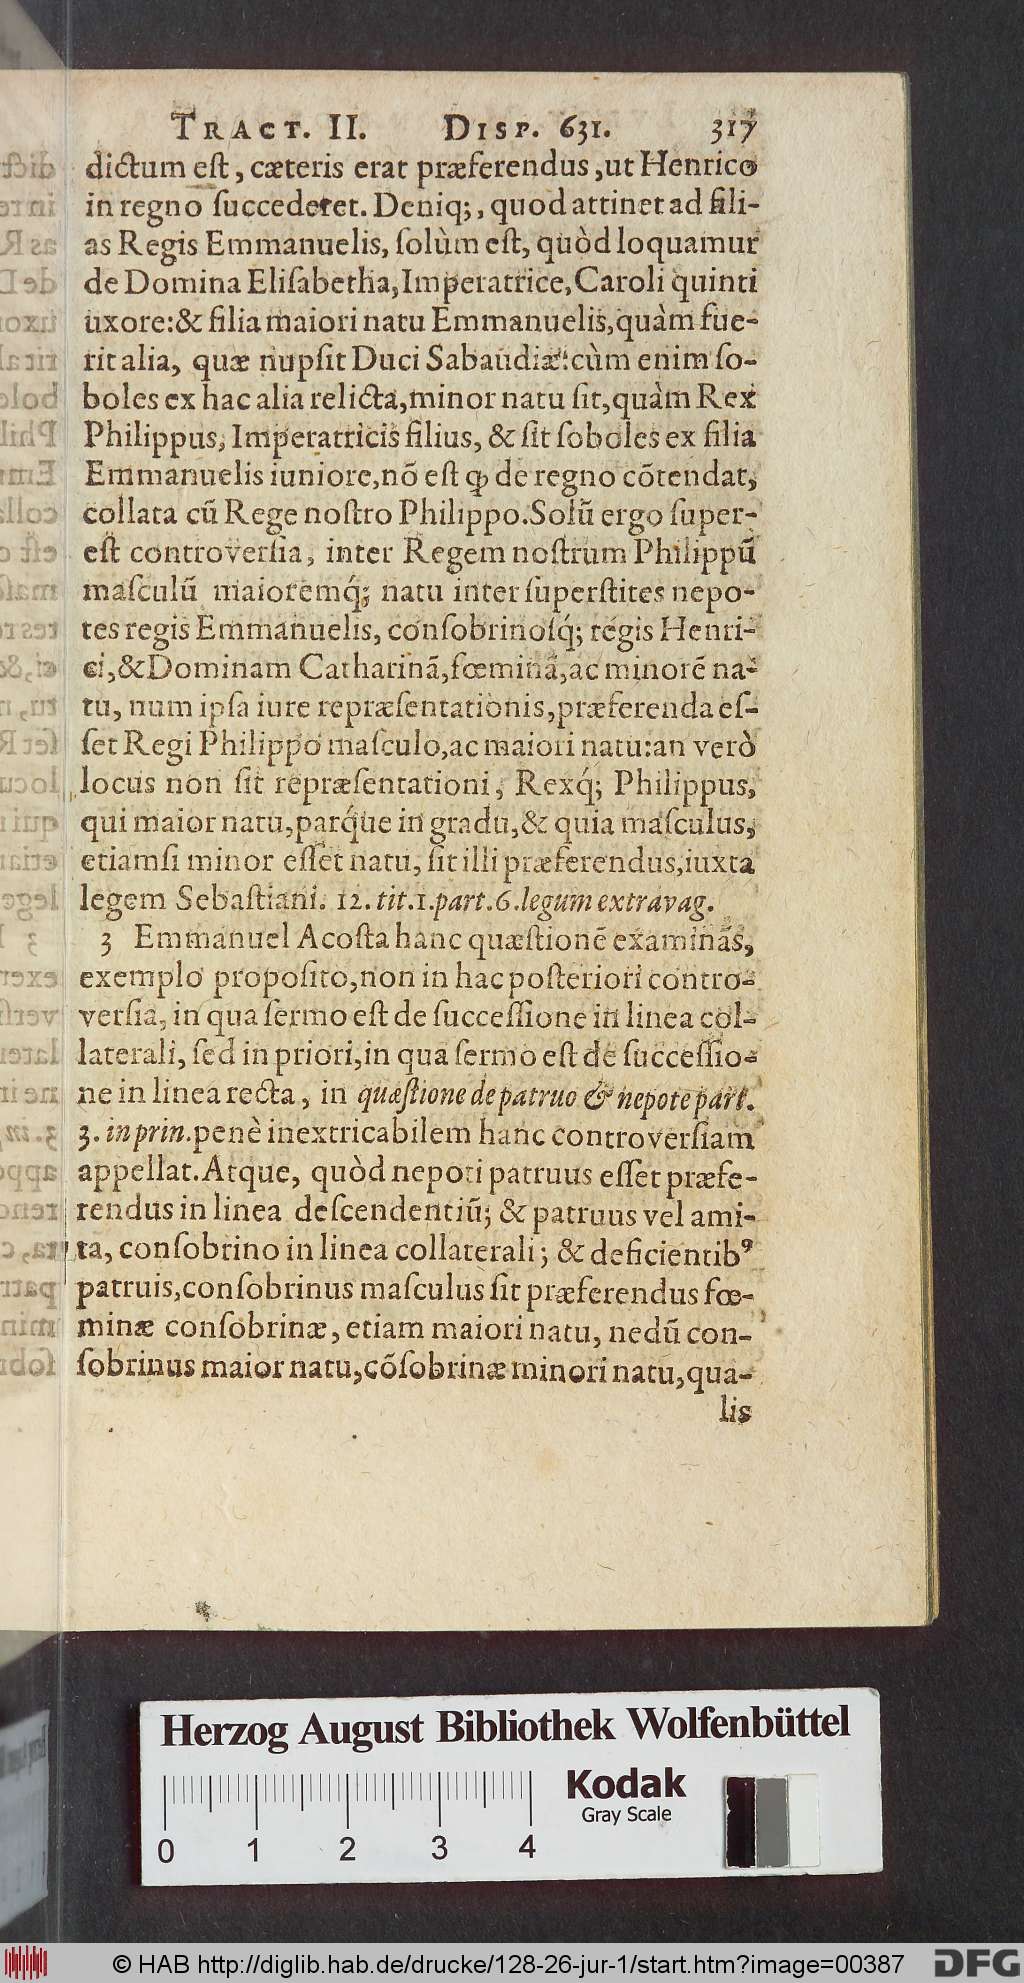 TRACT. II. DISP. 631. 317
dictum eſt, cæteris erat præferendus, ut Henrico
in regno ſuccederet. Deniq;, quod attinet ad fili-
as Regis Emmanuelis, ſolùm eſt, quòd loquamur
de Domina Eliſabetha, Imperatrice, Caroli quinti
uxore: & filia maiori natu Emmanuelis, quàm fue-
rit alia, quæ nupſit Duci Sabaudiæ: cùm enim ſo-
boles ex hac alia relicta, minor natu ſit, quàm Rex
Philippus, Imperatricis filius, & ſit ſoboles ex filia
Emmanuelis iuniore, nõ eſt ꝙ de regno cõtendat,
collata cũ Rege noſtro Philippo. Solũ ergo ſuper-
eſt controverſia, inter Regem noſtrum Philippũ
maſculũ maioremq́; natu inter ſuperſtites nepo-
tes regis Emmanuelis, conſobrinoſq́; regis Henri-
ci, & Dominam Catharinã, fœminã, ac minorẽ na-
tu, num ipſa iure repræſentationis, præferenda eſ-
ſet Regi Philippo maſculo, ac maiori natu: an verò
locus non ſit repræſentationi, Rexq́; Philippus,
qui maior natu, parq́ue in gradu, & quia maſculus,
etiamſi minor eſſet natu, ſit illi præferendus, iuxta
legem Sebaſtiani. 12. tit. 1. part. 6. legum extravag.
3 Emmanuel Acoſta hanc quæſtionẽ examinãs,
exemplo propoſito, non in hac poſteriori contro-
verſia, in qua ſermo eſt de ſucceſſione in linea col-
laterali, ſed in priori, in qua ſermo eſt de ſucceſſio-
ne in linea recta, in quæſtione de patruo & nepote part.
3. in prin. penè inextricabilem hanc controverſiam
appellat. Atque, quòd nepoti patruus eſſet præfe-
rendus in linea deſcendentiũ; & patruus vel ami-
ta, conſobrino in linea collaterali; & deficientibꝰ
patruis, conſobrinus maſculus ſit præferendus fœ-
minæ conſobrinæ, etiam maiori natu, nedũ con-
ſobrinus maior natu, cõſobrinæ minori natu, qua-
lis
Herzog August Bibliothek Wolfenbüttel
Kodak
Gray Scale
0 1 2 3 4
© HAB http://diglib.hab.de/drucke/128-26-jur-1/start.htm?image=00387
DFG